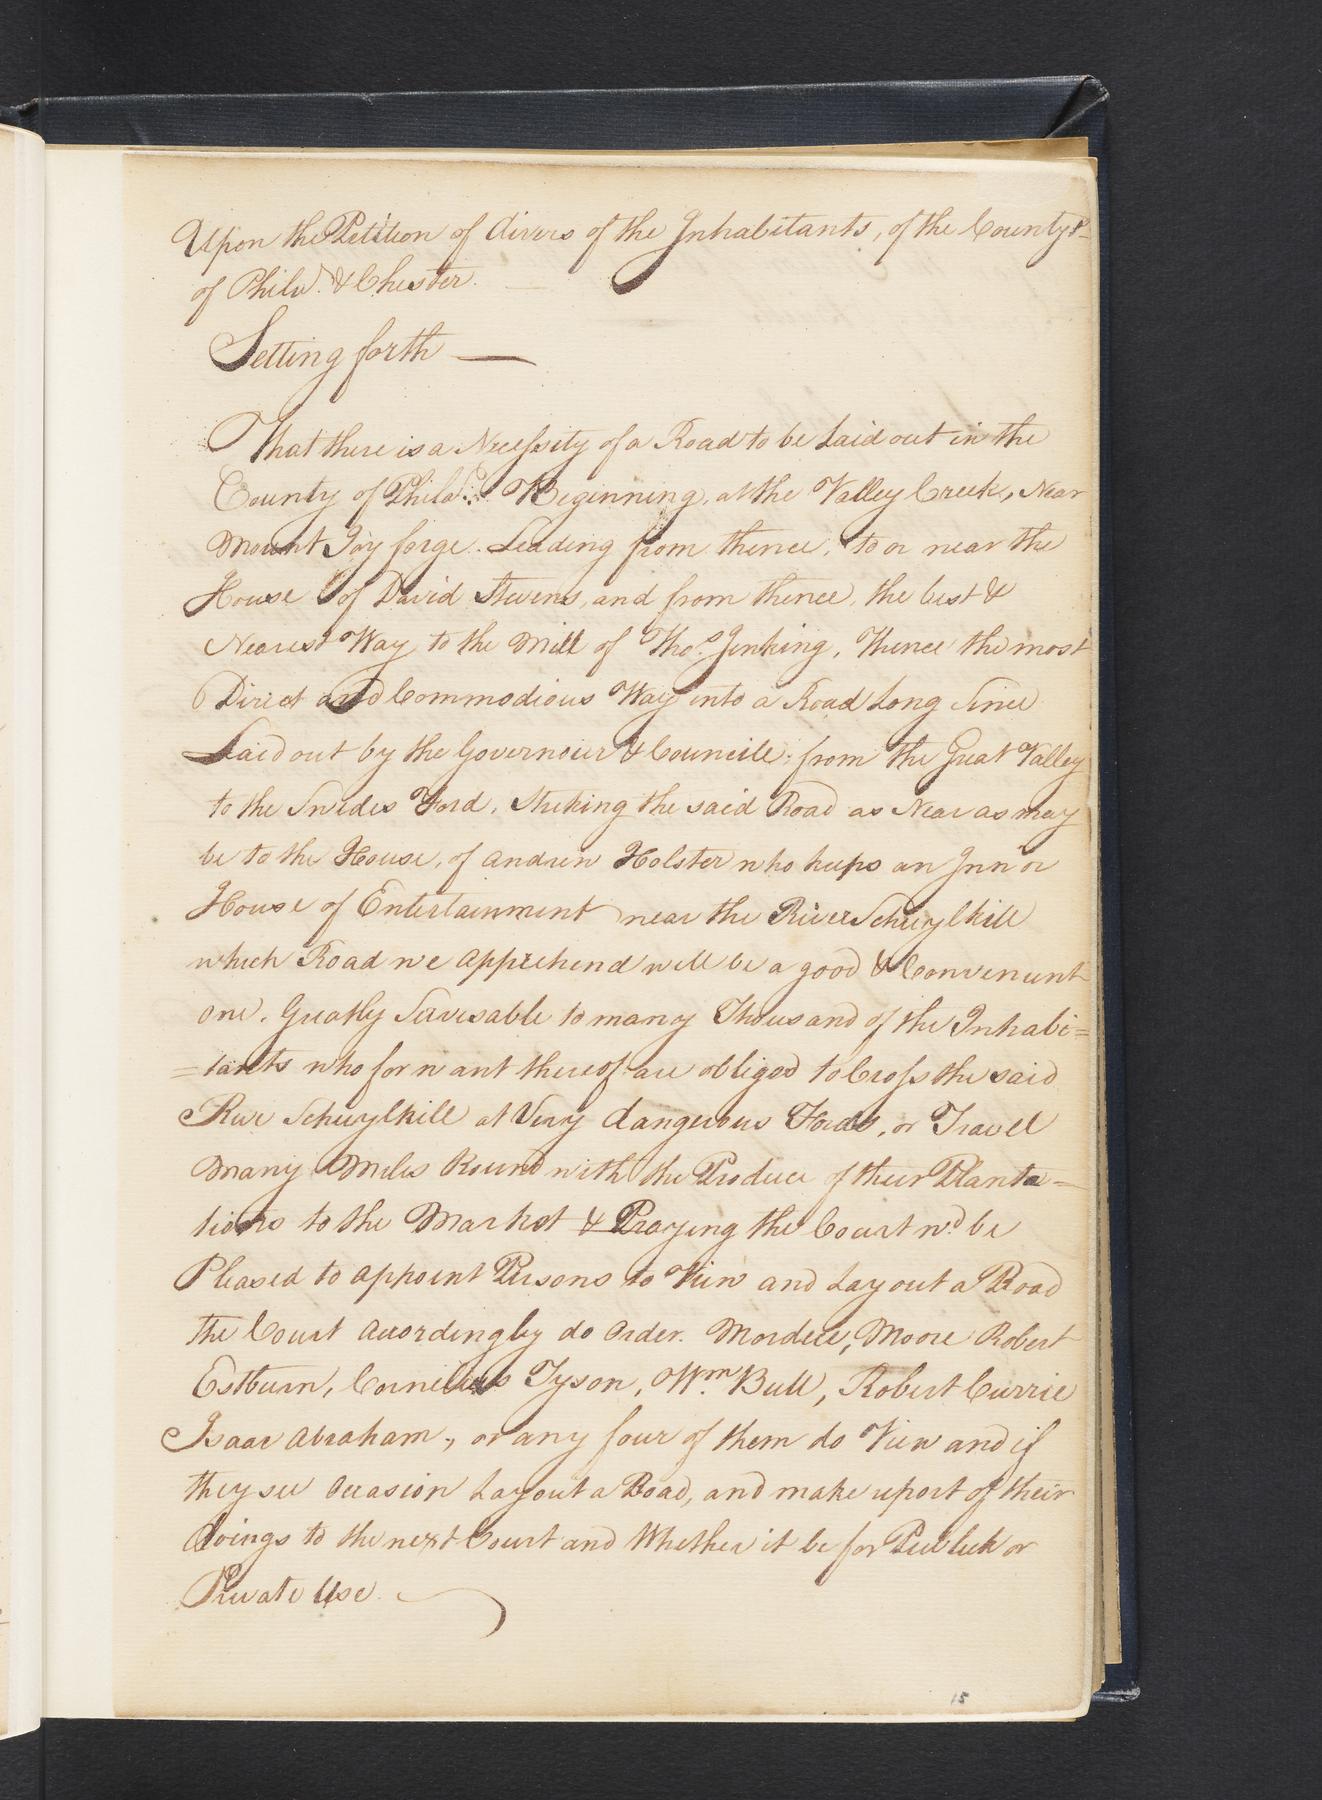 Upon the Petition of divers of the Inhabitants, of the Countys
of Philad. & Chester.
Setting forth —
That there is a Necessity of a Road to be Laid out in the
County of Philad. Beginning, at the Valley Creek, Near
Mount Joy forge. Leading from thence, to or near the
House of David Stevens, and from thence, the best &
Nearest Way to the Mill of Tho.s Jenking, Thence the most
Direct and Commodious Way into a Road Long Since
Laid out by the Governour & Councill, from the Great Valley
to the Swedes Ford, Striking the said Road as Near as may
be to the House, of Andrew Holster who keeps an Inn or
House of Entertainment near the River Schuylkill
which Road we apprehend will be a good & Convenient
one. Greatly Servisable to many Thousand of the Inhabi=
=tants who for want thereof are obliged to Cross the said
River Schuylkill at Very dangerous Fords, or Travell
Many Miles Round with the Produce of their Planta=
tions to the Market & Praying the Court wd. be
Pleased to appoint Persons to View and Lay out a Road
the Court accordingly do Order. Mordeca, Moore Robert
Estburn, Cornelius Tyson, Wm. Bull, Robert Currie
Isaac Abraham, or any four of them do View and if
they see Occasion Lay out a Road, and make report of their
doings to the next Court and Whether it be for Publick or
Private Use.
15